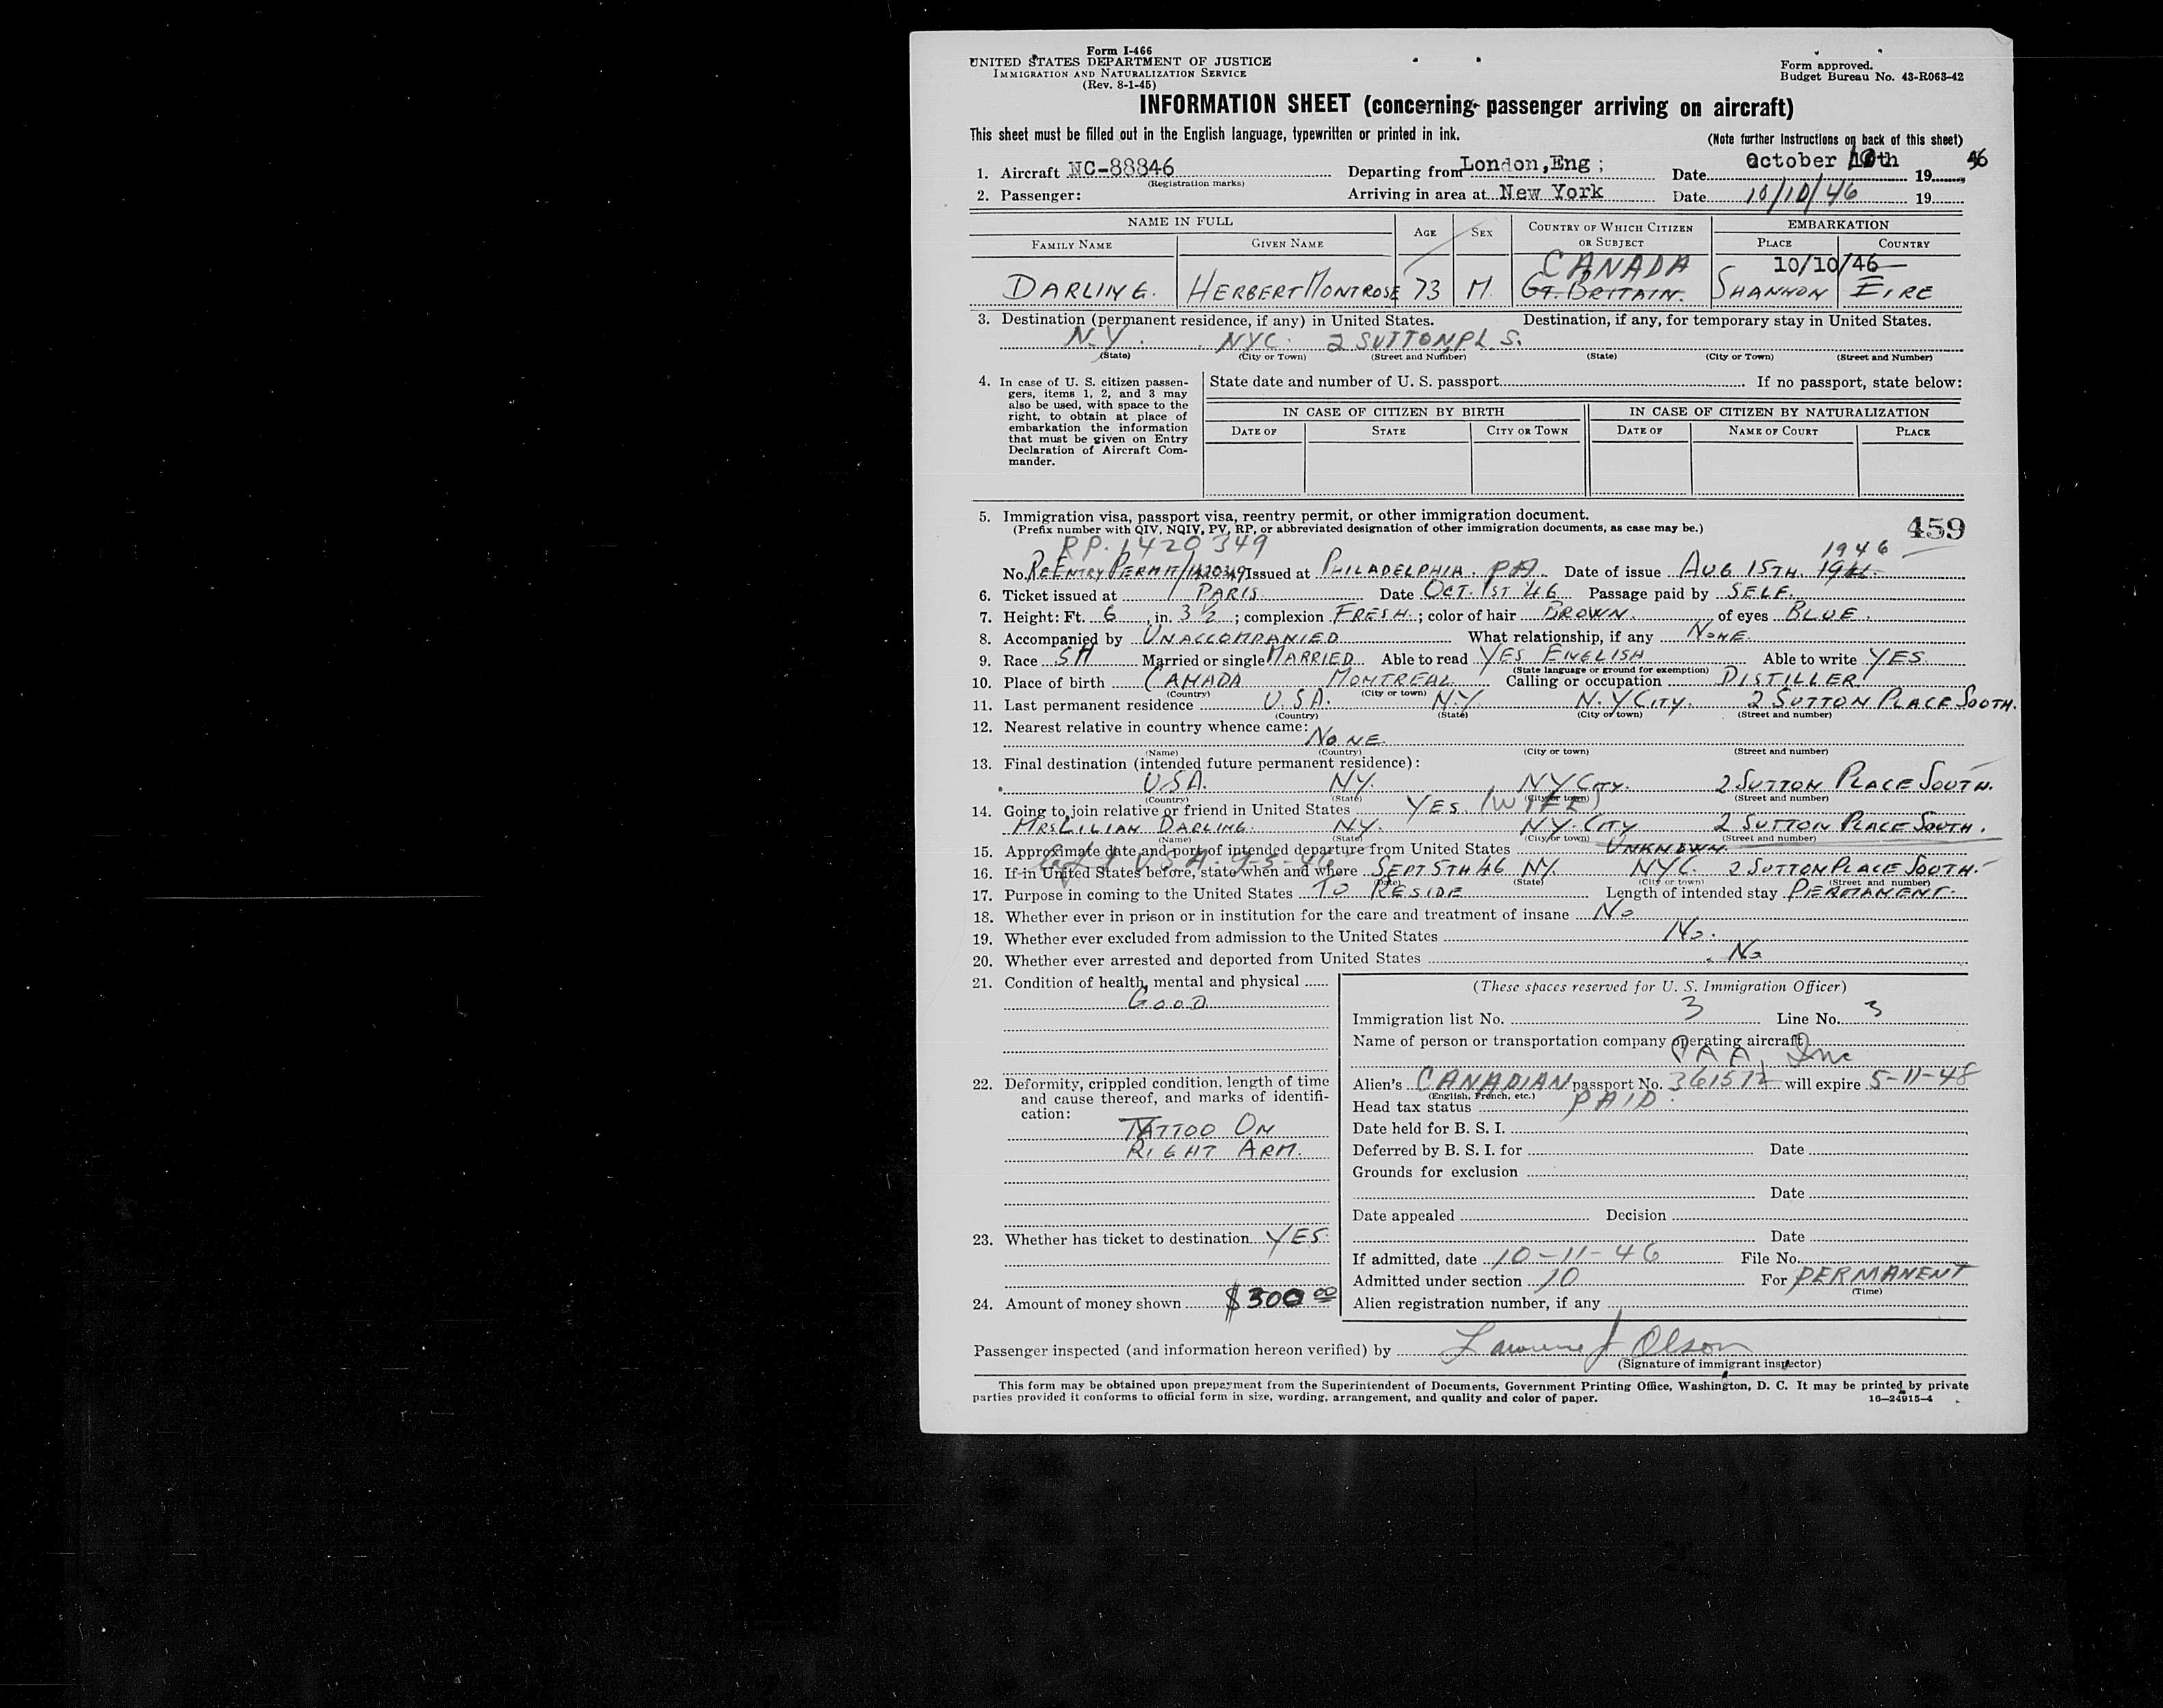 Form I-466
UNITED STATES DEPARTMENT OF JUSTICE
IMMIGRATION AND NATURALIZATION SERVICE
(Rev. 8-1-45)
Form approved.
Budget Bureau No. 43-R063-42
INFORMATION SHEET (concerning passenger arriving on aircraft)
This sheet must be filled out in the English language, typewritten or printed in ink.
(Note further instructions on back of this sheet)
1. Aircraft NC-88846 Departing from London, Eng ; Date October 10th 19 46
(Registration marks)
2. Passenger: Arriving in area at New York Date 10/10/46 19
NAME IN FULL AGE SEX COUNTRY OF WHICH CITIZEN OR SUBJECT EMBARKATION
FAMILY NAME GIVEN NAME PLACE COUNTRY
CANADA 10/10/46
DARLING. HERBERT MONTROSE 73 M. GT. BRITAIN. SHANNON EIRE
3. Destination (permanent residence, if any) in United States. Destination, if any, for temporary stay in United States.
N.Y. NYC. 2 SUTTON PL S.
(State) (City or Town) (Street and Number) (State) (City or Town) (Street and Number)
4. In case of U. S. citizen passen-
gers, items 1, 2, and 3 may
also be used, with space to the
right, to obtain at place of
embarkation the information
that must be given on Entry
Declaration of Aircraft Com-
mander.
State date and number of U. S. passport If no passport, state below:
IN CASE OF CITIZEN BY BIRTH IN CASE OF CITIZEN BY NATURALIZATION
DATE OF STATE CITY OR TOWN DATE OF NAME OF COURT PLACE
5. Immigration visa, passport visa, reentry permit, or other immigration document.
(Prefix number with QIV, NQIV, PV, RP, or abbreviated designation of other immigration documents, as case may be.)
459
RP. 1420349 1946
No. REENTRY PERMIT/1420349 Issued at PHILADELPHIA. PA Date of issue AUG 15TH.
6. Ticket issued at PARIS Date OCT. 1ST 46 Passage paid by SELF.
7. Height: Ft. 6, in. 3 1/2; complexion FRESH.; color of hair BROWN. of eyes BLUE.
8. Accompanied by UNACCOMPANIED What relationship, if any NONE.
9. Race SH Married or single MARRIED Able to read YES ENGLISH Able to write YES
(State language or ground for exemption)
10. Place of birth CANADA MONTREAL Calling or occupation DISTILLER
(Country) (City or town)
11. Last permanent residence U.S.A. N.Y. N.Y CITY. 2 SUTTON PLACE SOUTH.
(Country) (State) (City or town) (Street and number)
12. Nearest relative in country whence came:
NONE
(Name) (Country) (City or town) (Street and number)
13. Final destination (intended future permanent residence):
USA. NY. NY CITY. 2 SUTTON PLACE SOUTH.
(Country) (State) (City or town) (Street and number)
14. Going to join relative or friend in United States YES. (WIFE)
MRS LILIAN DARLING. NY. NY. CITY 2 SUTTON PLACE SOUTH.
(Name) (State) (City or town) (Street and number)
15. Approximate date and port of intended departure from United States UNKNOWN.
Left U.S.A. 9-5-46
16. If in United States before, state when and where SEPT 5TH 46 NY. NYC. 2 SUTTON PLACE SOUTH.
(Date) (State) (City or town) (Street and number)
17. Purpose in coming to the United States TO RESIDE Length of intended stay PERMANENT.
18. Whether ever in prison or in institution for the care and treatment of insane No
19. Whether ever excluded from admission to the United States No.
20. Whether ever arrested and deported from United States No
21. Condition of health, mental and physical
GOOD
22. Deformity, crippled condition, length of time
and cause thereof, and marks of identifi-
cation:
TATTOO ON
RIGHT ARM.
23. Whether has ticket to destination YES.
24. Amount of money shown $300 00
(These spaces reserved for U. S. Immigration Officer)
Immigration list No. 3 Line No. 3
Name of person or transportation company operating aircraft
PAA, Inc
Alien's CANADIAN passport No. 361572 will expire 5-11-48
(English, French, etc.)
Head tax status PAID.
Date held for B. S. I.
Deferred by B. S. I. for Date
Grounds for exclusion
Date
Date appealed Decision
Date
If admitted, date 10-11-46 File No.
Admitted under section 10 For PERMANENT
(Time)
Alien registration number, if any
Passenger inspected (and information hereon verified) by Lawrence J Olson
(Signature of immigrant inspector)
This form may be obtained upon prepayment from the Superintendent of Documents, Government Printing Office, Washington, D. C. It may be printed by private
parties provided it conforms to official form in size, wording, arrangement, and quality and color of paper. 16—24915-4